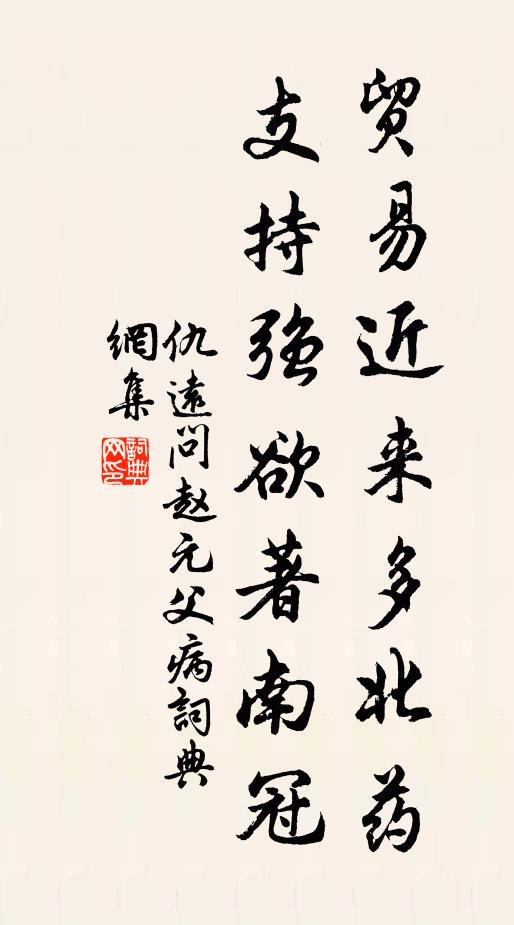 贸易近来多北药
支持強欲著南冠
仇遠问赵元父病詞典
網集
詞典
网印